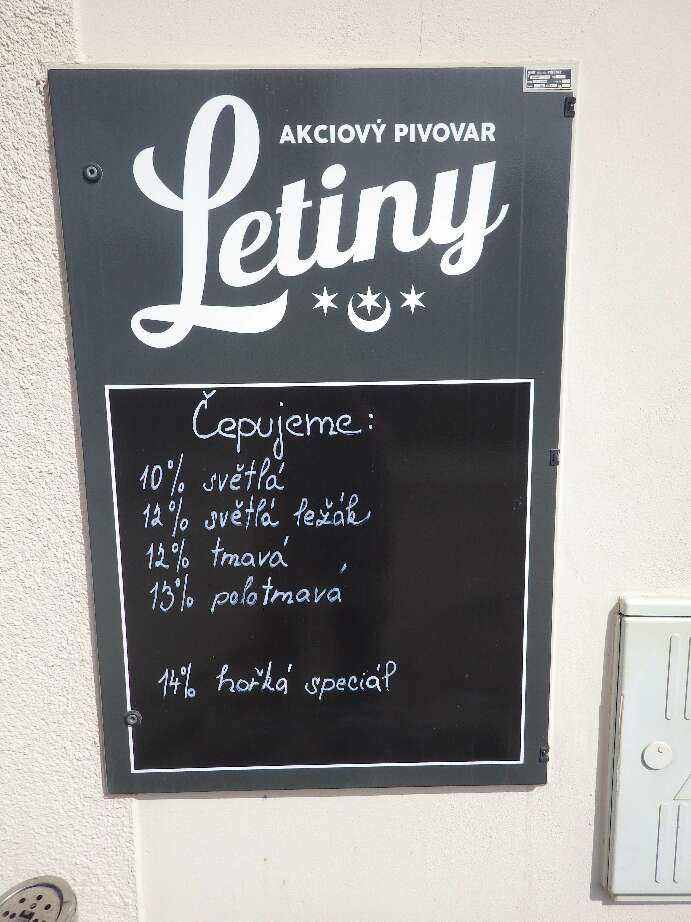 AKCIOVÝ PIVOVAR
Letiny
Čepujeme:
10% světlá
12% světlá ležák
12% tmavá
13% polotmavá
14% hořká speciál